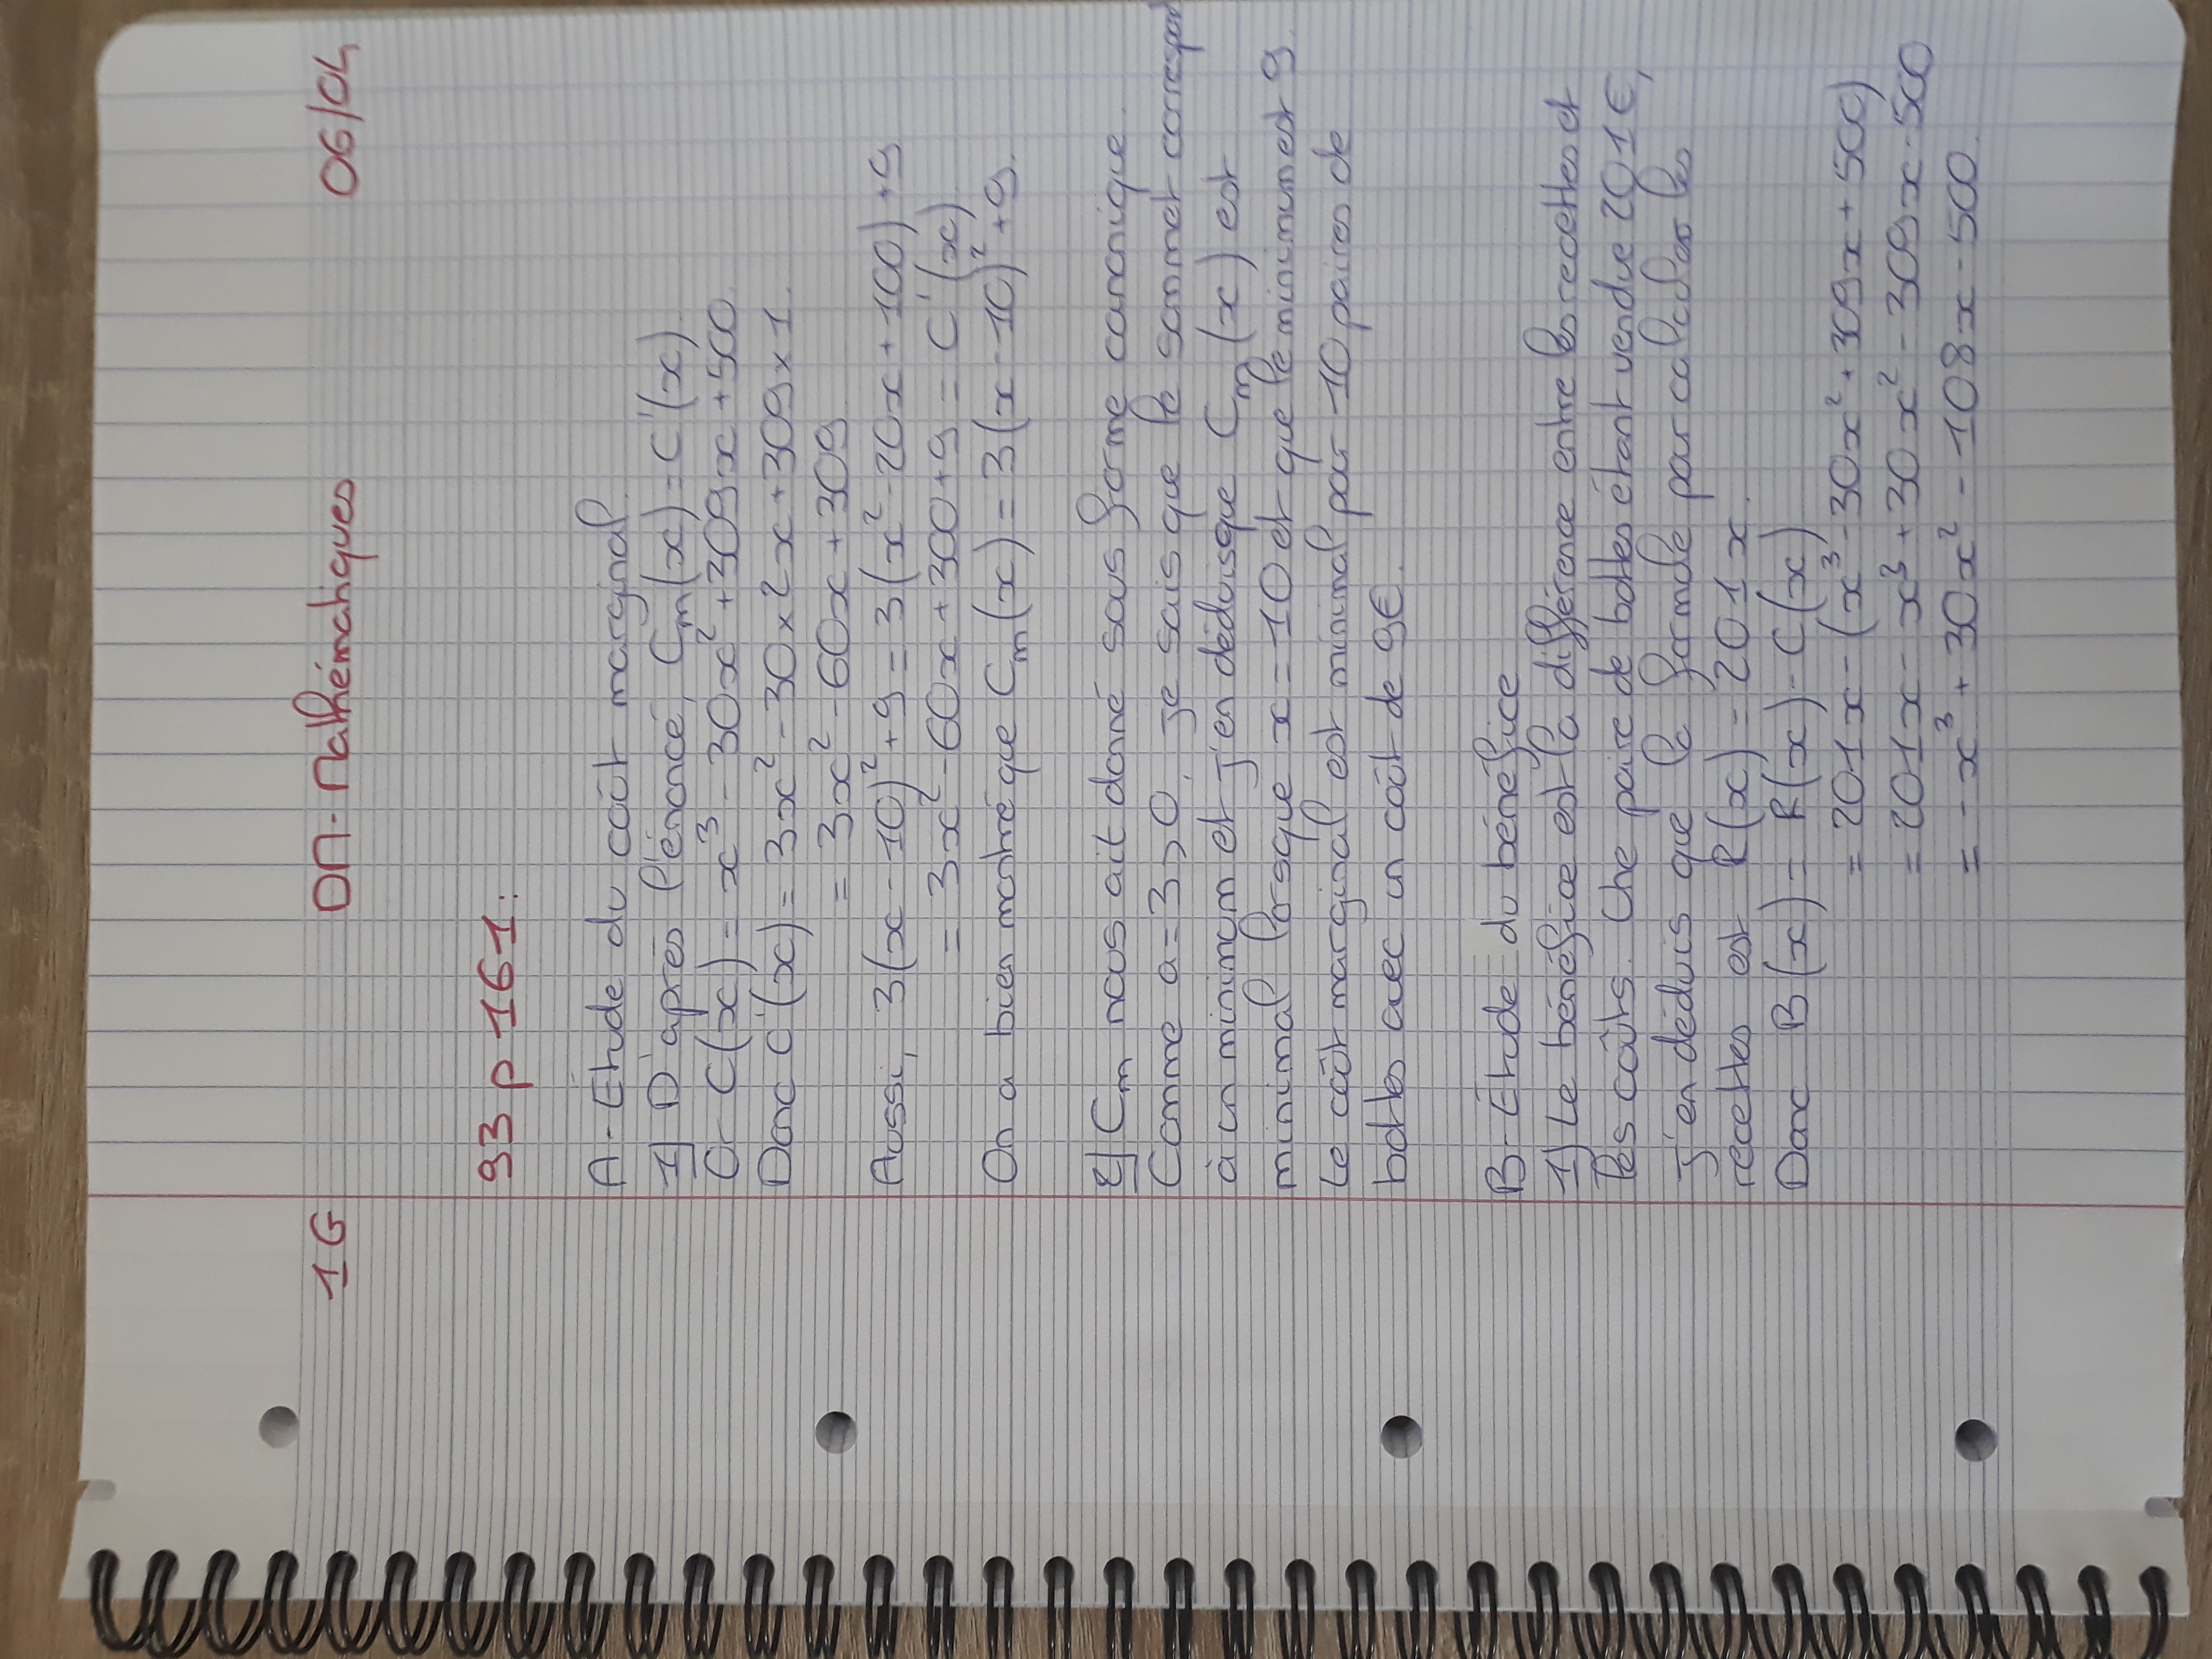 1G DM - Mathématiques 06/04
93 p 161:
A - Étude du coût marginal.
1) D'après l'énoncé, Cm(x) = C'(x).
Or C(x) = x³ - 30x² + 309x + 500.
Donc C'(x) = 3x² - 30 × 2x + 309 × 1.
= 3x² - 60x + 309
Aussi, 3(x - 10)² + 9 = 3(x² - 20x + 100) + 9
= 3x² - 60x + 300 + 9 = C'(x).
On a bien montré que Cm(x) = 3(x - 10)² + 9.
2) Cm nous ait donné sous forme canonique.
Comme a = 3 > 0, je sais que le sommet correspond
à un minimum et j'en déduis que Cm(x) est
minimal lorsque x = 10 et que le minimum est 9.
Le coût marginal est minimal pour 10 paires de
bottes avec un coût de 9€.
B - Étude du bénéfice
1) Le bénéfice est la différence entre les recettes et
les coûts. Une paire de bottes étant vendue 201€,
j'en déduis que la formule pour calculer les
recettes est R(x) = 201x.
Donc B(x) = R(x) - C(x)
= 201x - (x³ - 30x² + 309x + 500)
= 201x - x³ + 30x² - 309x - 500
= -x³ + 30x² - 108x - 500.